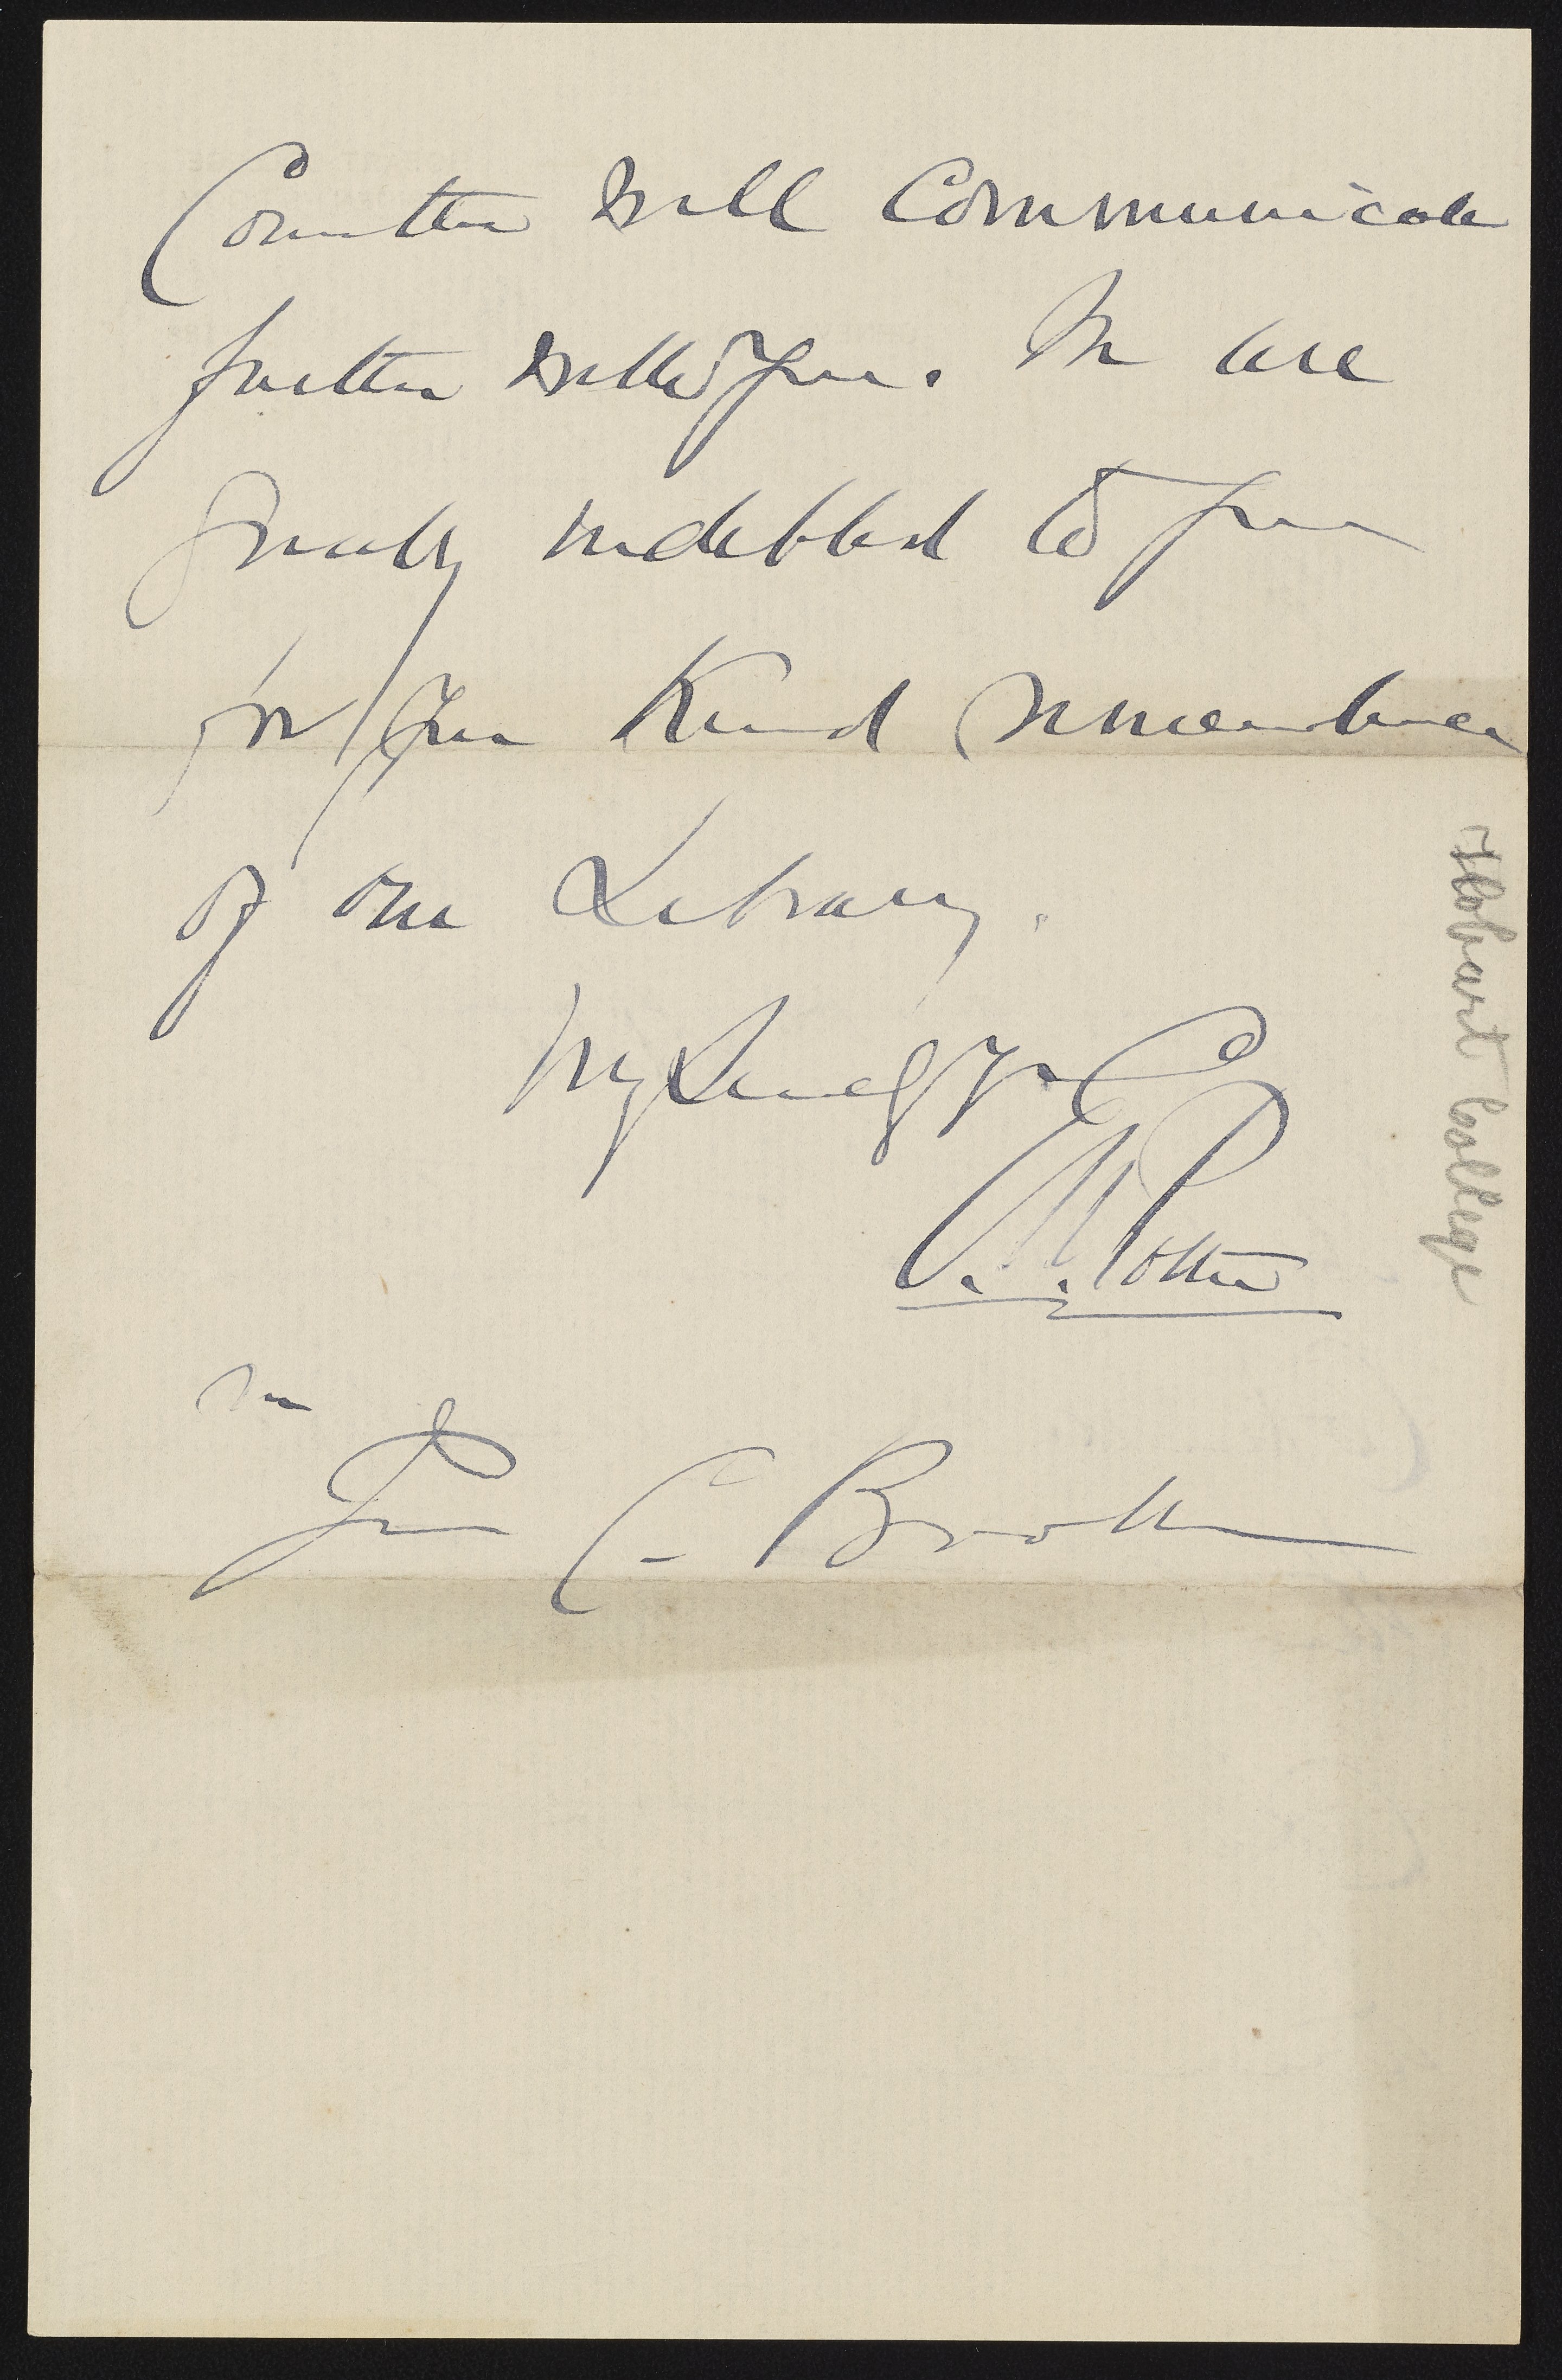 Committee will communicate
further with you. We are
greatly indebted to you
for your kind remembrance
of our Library.
Very sincerely yrs
E. N. Potter
Mr
Jno C. Brooks
Hobart College